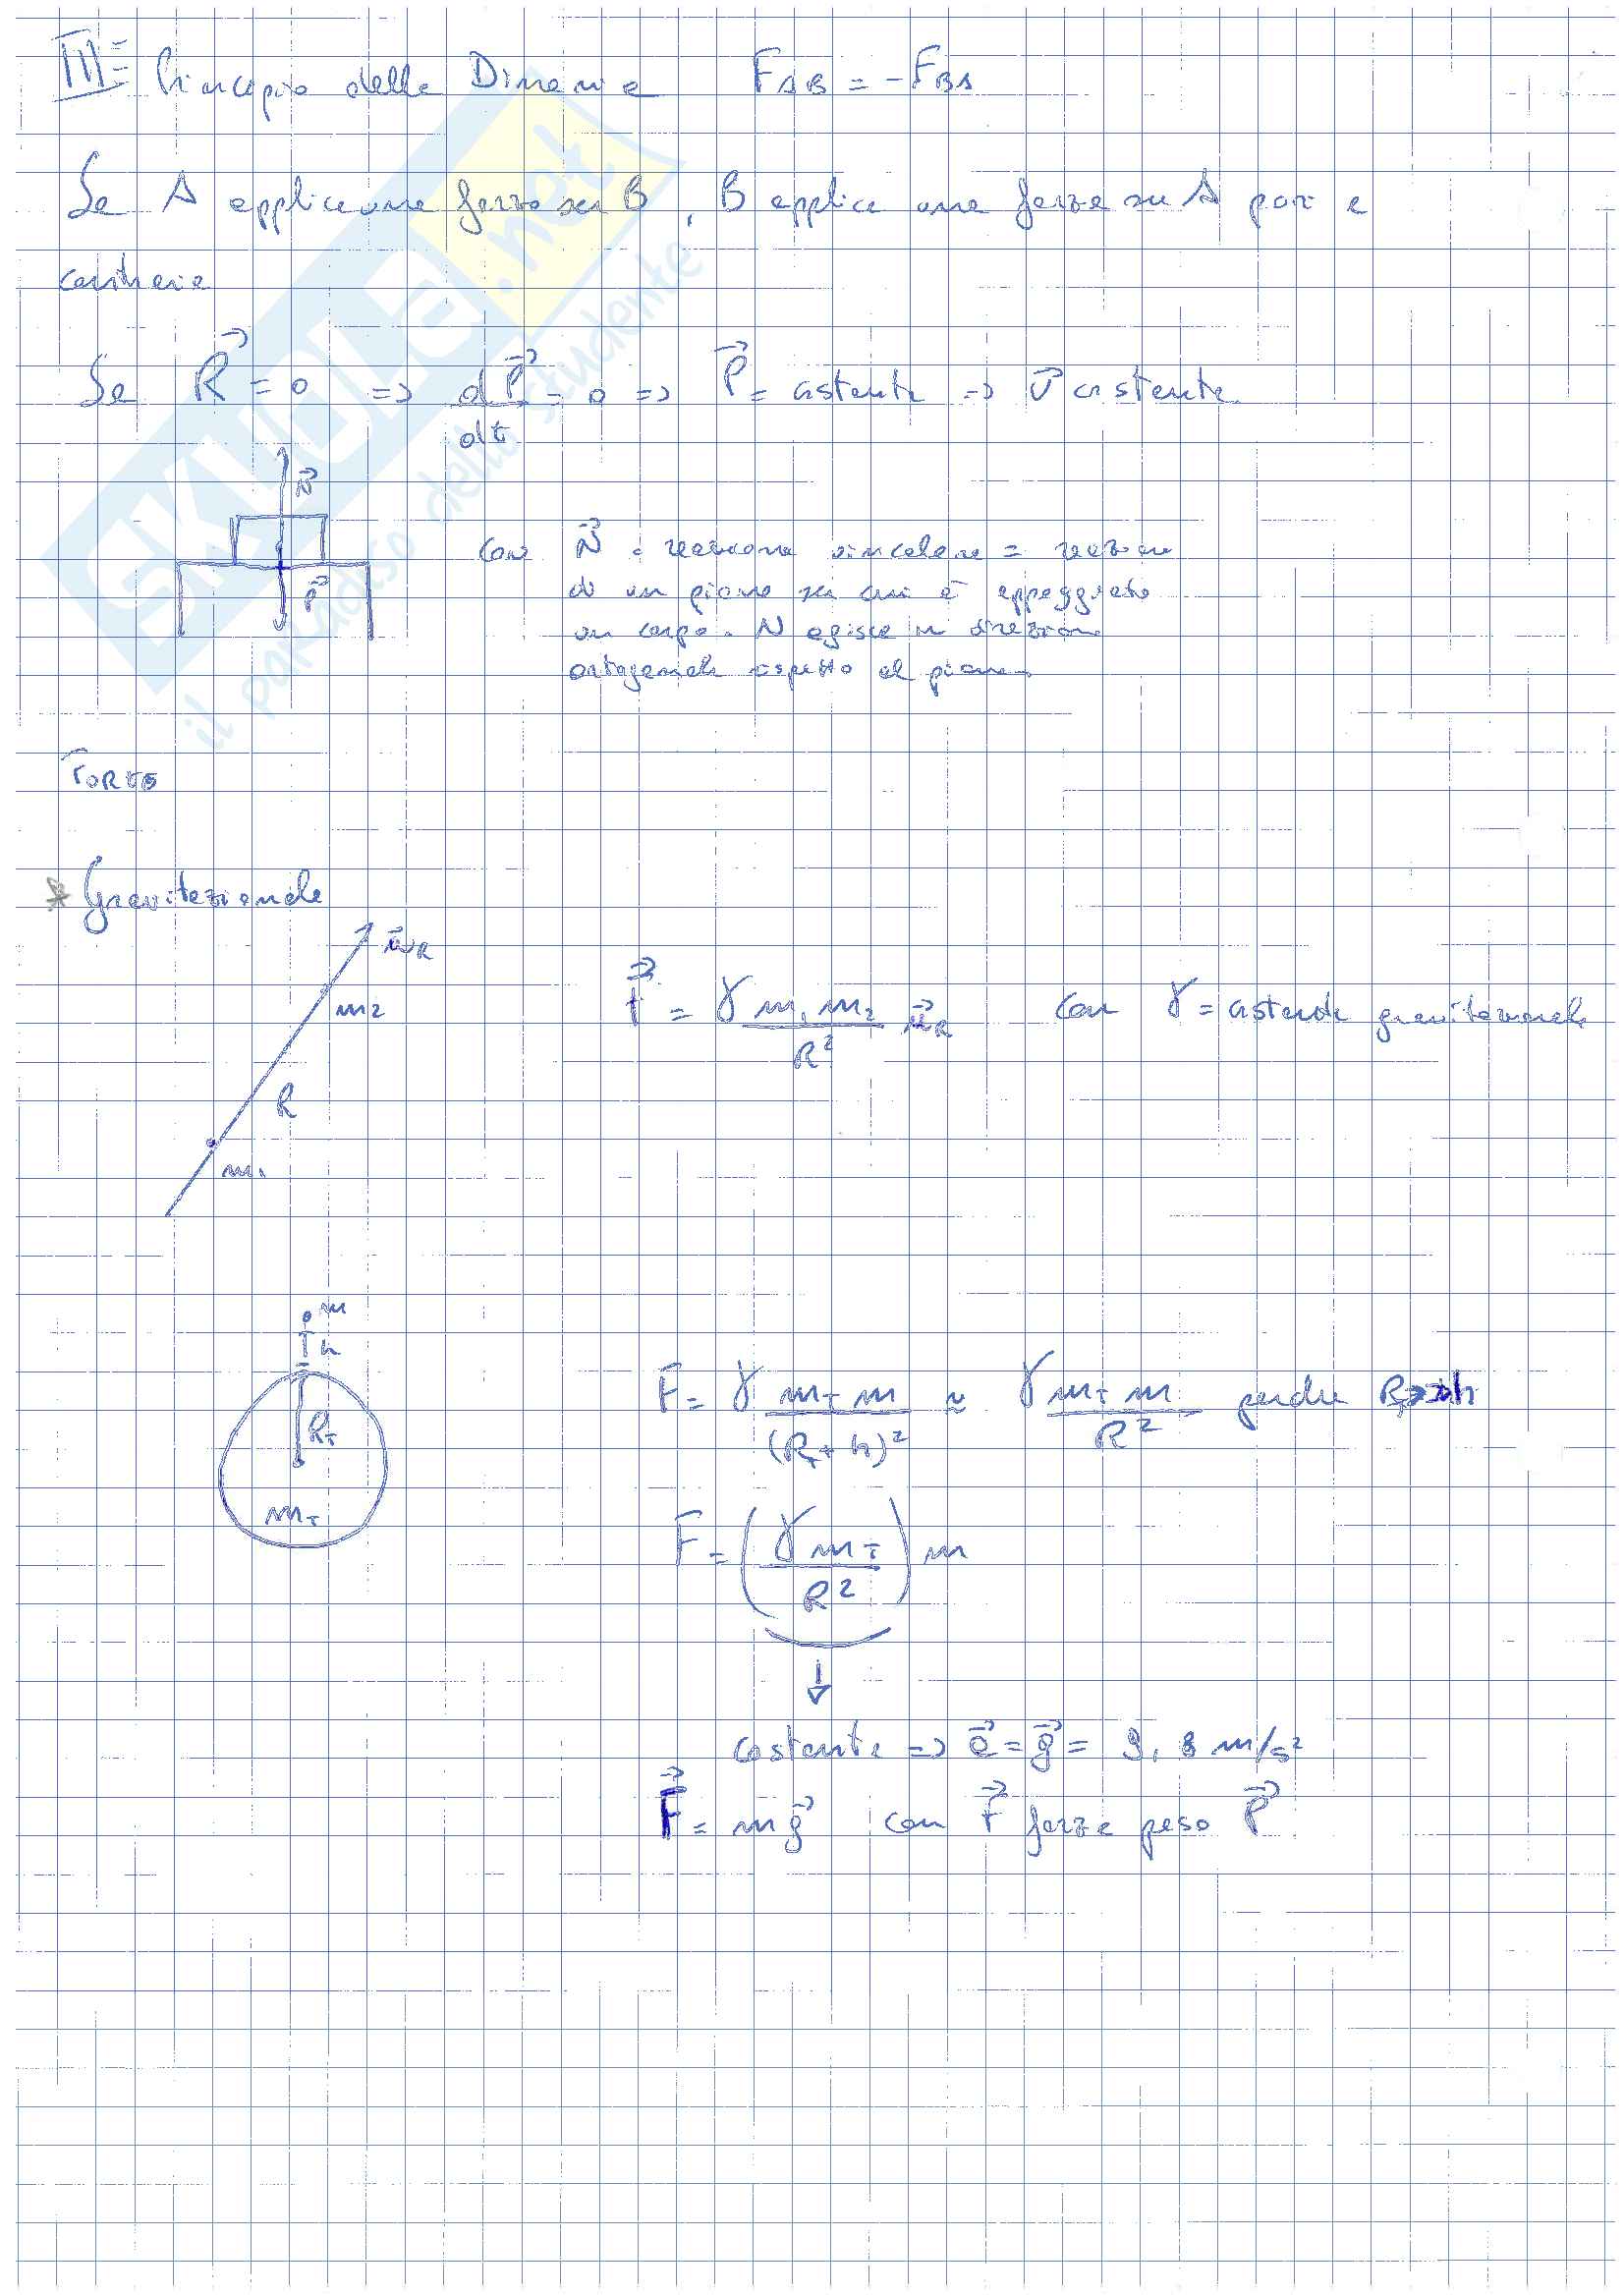 III° Principio della Dinamica F_AB = -F_BA
Se A applica una forza su B, B applica una forza su A pari e
contraria
Se R⃗ = 0 => dP⃗/dt = 0 => P⃗ = costante => v⃗ costante
N⃗
P⃗
Con N⃗ = reazione vincolare = reazione
di un piano su cui è appoggiato
un corpo. N agisce in direzione
ortogonale rispetto al piano
* Gravitazionale
u⃗_R
m2
R
m1
F⃗ = γ m1 m2 / R² u⃗_R con γ = costante gravitazionale
m
h
R_T
m_T
F = γ m_T m / (R_T + h)² ≈ γ m_T m / R² perché R_T >> h
F = (γ m_T / R²) m
costante => a⃗ = g⃗ = 9,8 m/s²
F⃗ = m g⃗ con F⃗ forza peso P⃗
SKUOLA.net
il paradiso dello studente